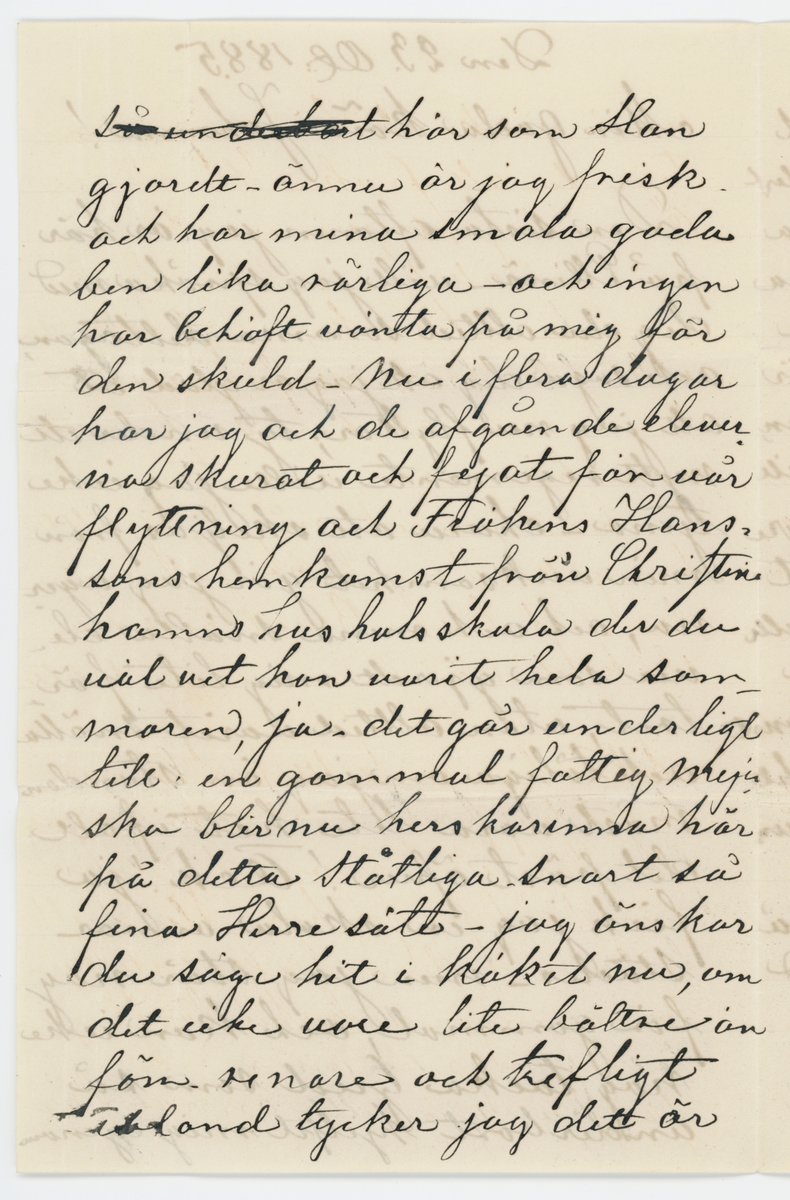 så underbart här som Han
gjordt - ännu är jag frisk.
och har mina smala goda
ben lika rörliga - och ingen
har behöft vänta på mig för
den skuld - Nu i flera dagar
har jag och de afgående elever.
na skurat och fejat för vår
flyttning och Frökens Hans-
sons hemkomst från Christine
hamns hushalsskola der du
väl vet hon varit hela som-
maren, ja - det går underligt
till. en gammal fattig Meje
ska blir nu herskarinna här
på detta Ståtliga snart så
fina Herresäte - jag önskar
du såge hit i köket nu, om
det icke vore lite bättre än
förr. renare och trefligt
ibland tycker jag dett är